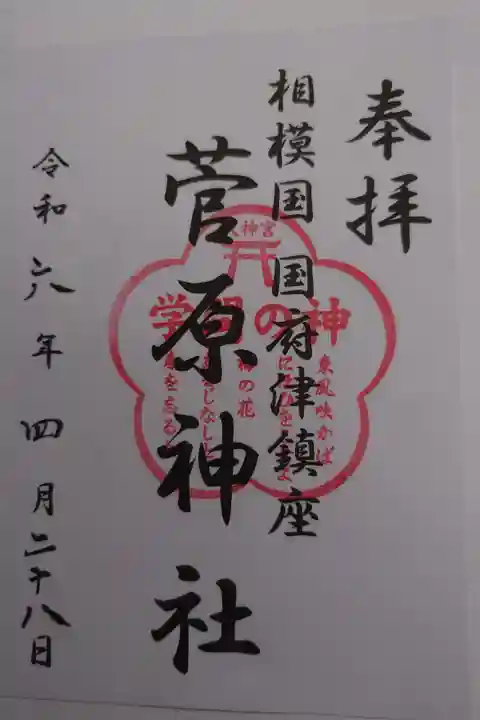 奉拝
相模国 国府津鎮座
菅原神社
令和六年四月二十八日
神宮
学問の神
東風吹かば
にほひをこせよ
梅の花
るじなし
を忘る